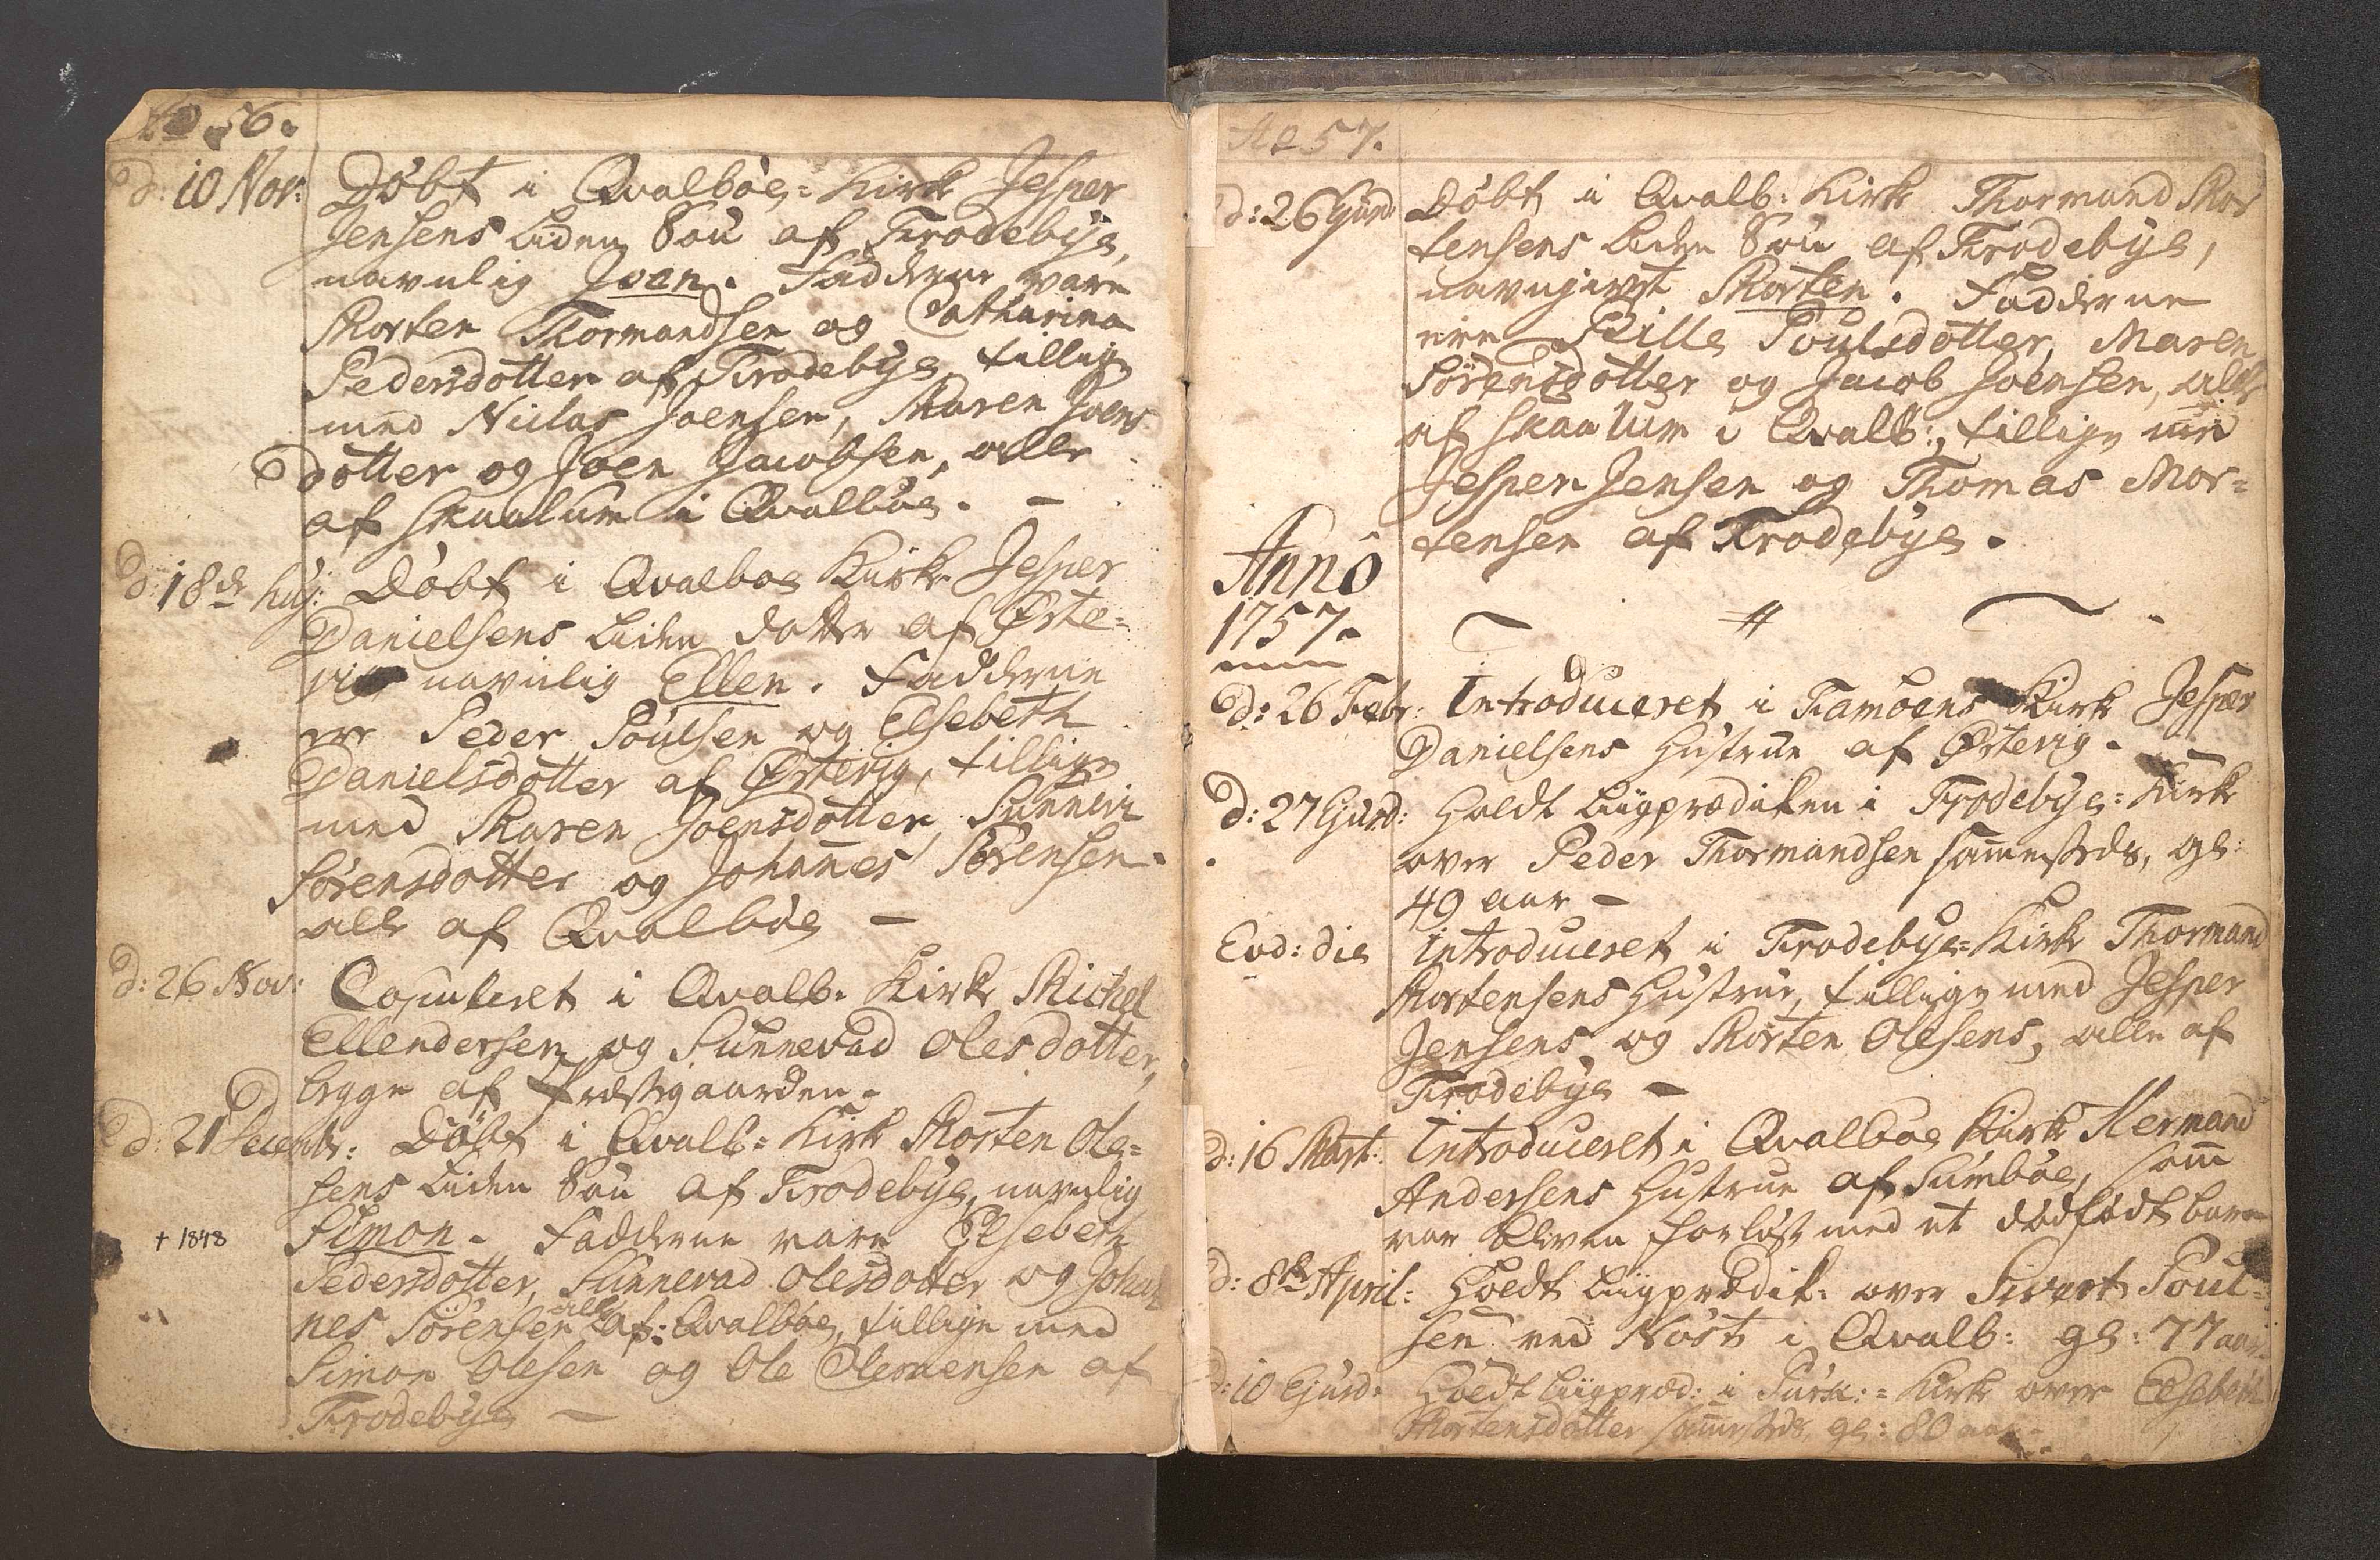 Ao 56.
d: 10 Nov: Döbt i Qvalböe=Kirke Jesper
Jensens liden Sön af Frodebÿe,
navnlig Joen. Fadderne vare
Morten Thormandsen og Catharina
Pedersdotter af Frodebÿe, tillige
med Niclas Joensen, Maren Joens
dotter og Joen Jacobsen, alle
af Skaalum i Qvalböe. –
d: 18de huj: Döbt i Qvalboe Kirke Jesper
Danielsens liden dotter af Örte=
vig navnlig Ellen. Fadderne
ere Peder Poulsen og Elsebeth
Danielsdotter af Örtevig, tillige
med Maren Joensdotter, Sunneva
Sörensdotter og Johañes Sörensen
alle af Qvalböe –
d: 26 Nov: Copuleret i Qvalb. Kirke Michel
Ellendersen og Sunnevad Olesdotter,
begge af Præstegaarden.
d: 21 Decembr: Döbt i Qvalb: Kirke Morten Ole=
sens liden Sön af Frodebÿe, navnlig
Simon. Fadderne vare Elsebeth
+ 1848
Pedersdotter, Sunnevad Olesdotter og Johan
nes Sörensen alle af: Qvalböe, tillige med
Simon Olesen og Ole Clemensen af
Frodebÿe –
Ao 57.
d: 26 Ejusd: Döbt i Qvalb: Kirke Thormand Mor
tensens liden Sön af Frodebÿe,
navngivet Morten. Fadderne
ere Pille Poulsdotter, Maren
Sörensdotter og Jacob Joensen, alle
af Skaalum i Qvalb:, tillige med
Jesper Jensen og Thomas Mor=
tensen af Frodebÿe.
Anno
1757.
d: 26 Febr: Introduceret i Famöens Kirke Jesper
Danielsens Hustrue af Örtevig. –
d: 27 Ejusd: Holdt Liigprædiken i Frodebÿe=Kirke
over Peder Thormandsen samestæds, gl:
49 aar –
Eod: die Introduceret i Frodebÿe=Kirke Thormand
Mortensens Hustrue, tillige med Jesper
Jensens, og Morten Olesens, alle af
Frodebÿe –
d: 16 Mart: Introduceret i Qvalboe Kirke Hermand
Andersens Hustrue af Sumböe, som
var bleven forlöst med et dödfödt barn
d: 8de April: Holdt Liigprædik: over Sivert Poul=
sen ved Nöst i Qvalb: gl: 77 aar
d: 10 Ejusd: Holdt Liigpræd: i =Kirke over Elsebeth
Mortensdotter samestæds, gl: 80 aar.